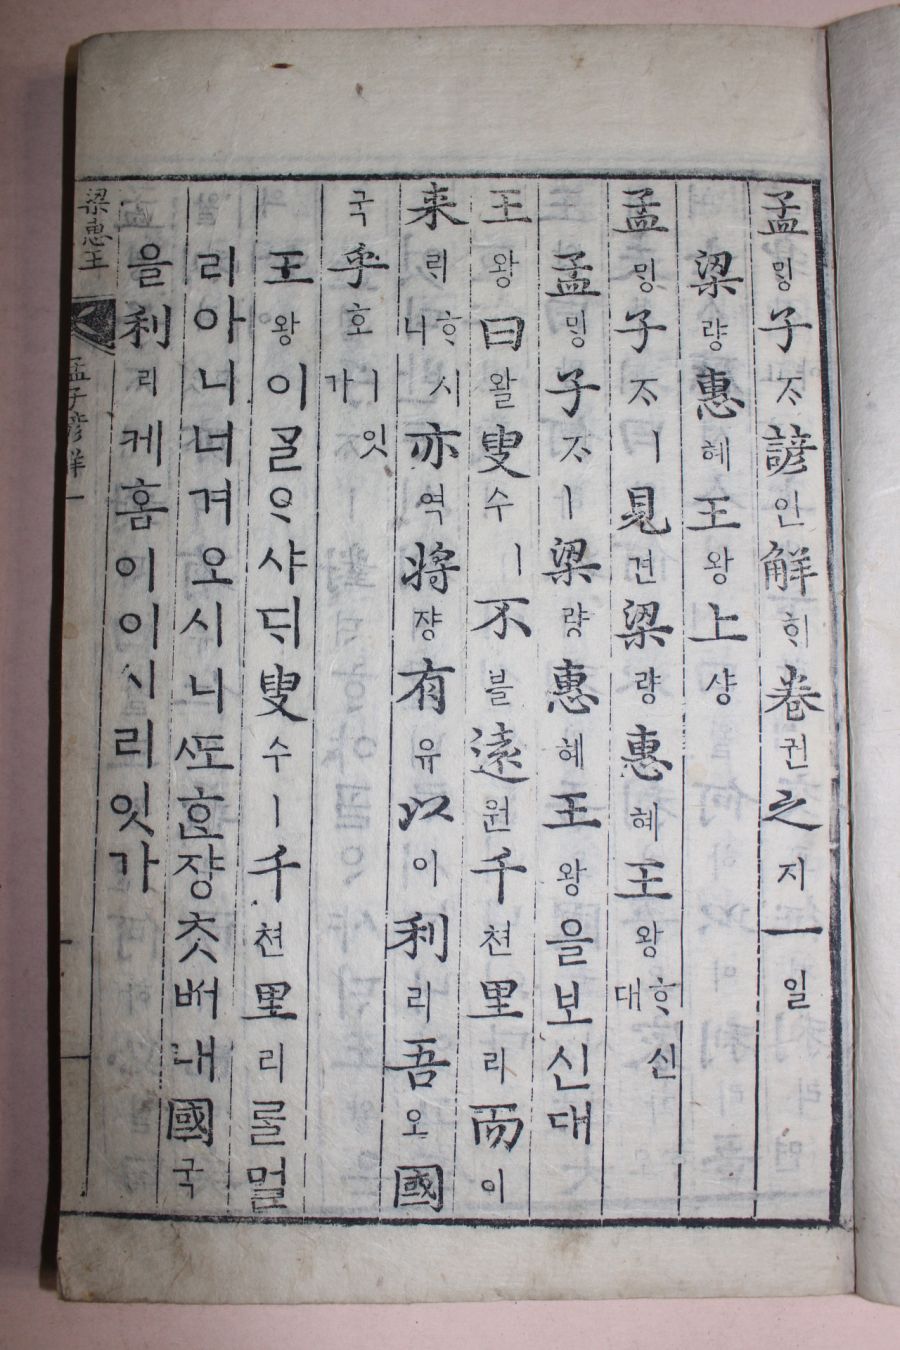 孟ᄆᆡᆼ子ᄌᆞ諺언解ᄒᆡ卷권之지一일
梁량惠혜王왕上샹
孟ᄆᆡᆼ子ᄌᆞㅣ見견梁량惠혜王왕ᄒᆞ신대
孟ᄆᆡᆼ子ᄌᆞㅣ梁량惠혜王왕을보신대
王왕曰왈叟수ㅣ不블遠원千쳔里리而이
来ᄅᆡᄒᆞ시니亦역將쟝有유以이利리吾오國
국乎호ㅣ잇가
王왕이ᄀᆞᆯᄋᆞ샤ᄃᆡ叟수ㅣ千쳔里리ᄅᆞᆯ멀
리아니녀겨오시니ᄯᅩᄒᆞᆫ쟝ᄎᆞᆺᄡᅥ내國국
을利리케홈이이시리잇가
梁惠王 孟子諺解一